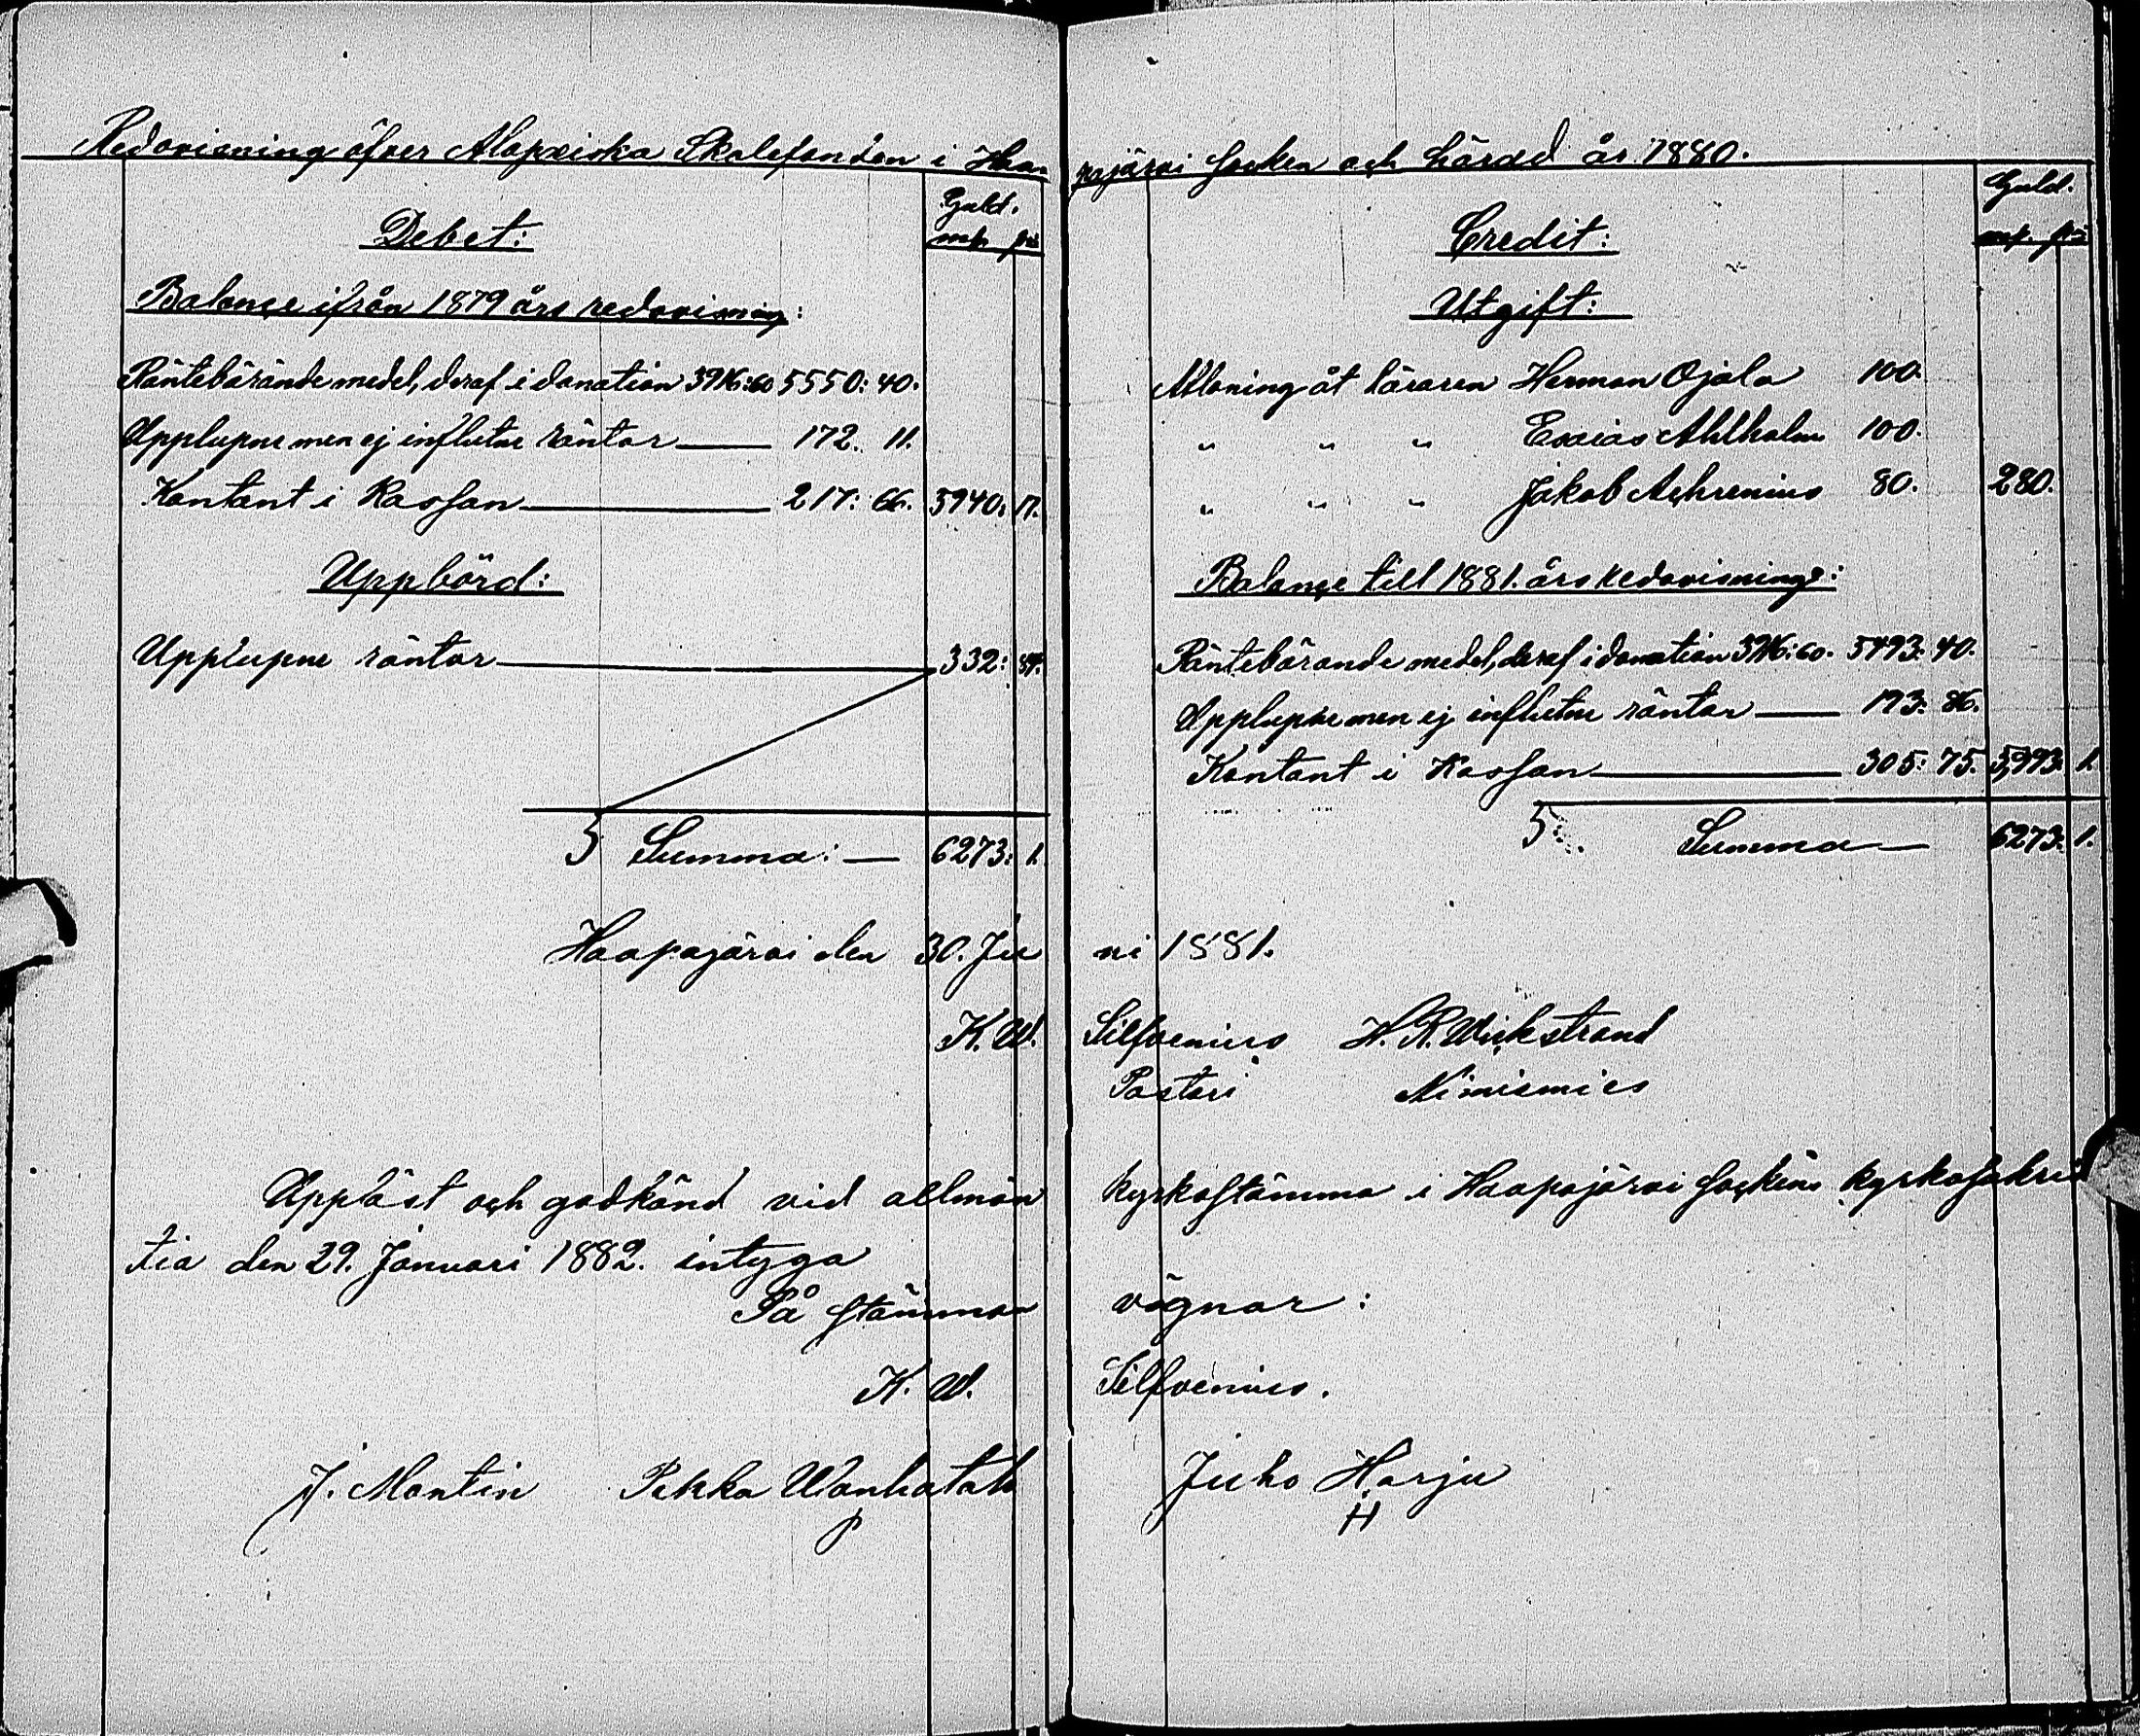 Redovisning öfver Alopæiska Skolefonden i Haa-
Guld.
Debet:
mk. pi
Balançe ifrån 1879 års redovisning:
Räntebärande medel, deraf i donation 3916:60 5550: 40.
Upplupne men ej influtne räntor 172. 11.
Kontant i Kassan 217: 66. 5940: 17.
Uppbörd:
Upplupne räntor 332: 84.
Summa: 6273: 1.
Haapajärvi den 30. Ju
K. W.
Uppläst och godkänd vid allmän
tia den 29. Januari 1882. intyga
På stämmans
K. W.
J. Montin Pekka Wanhatalo
P
pajärvi socken och härad år 1880.
Guld.
Credit:
mk. pi
Utgift:
Aflöning åt läraren Herman Ojala 100.
" " " Esaias Ahlholm 100.
" " " Jakob Achrenius 80. 280.
Balançe till 1881. års redovisning:
Räntebärande medel, deraf i donation 3916:60. 5493: 40.
Upplupne men ej influtne räntor 193: 86.
Kontant i Kassan 305: 75. 5,993. 1.
Summa 6273. 1.
ni 1881.
Silfvenius H. R. Wickstrand
Pastori Nimismies
kyrkostämma i Haapajärvi sockens kyrkosakris
vägnar:
Silfvenius.
Juho Harju
H